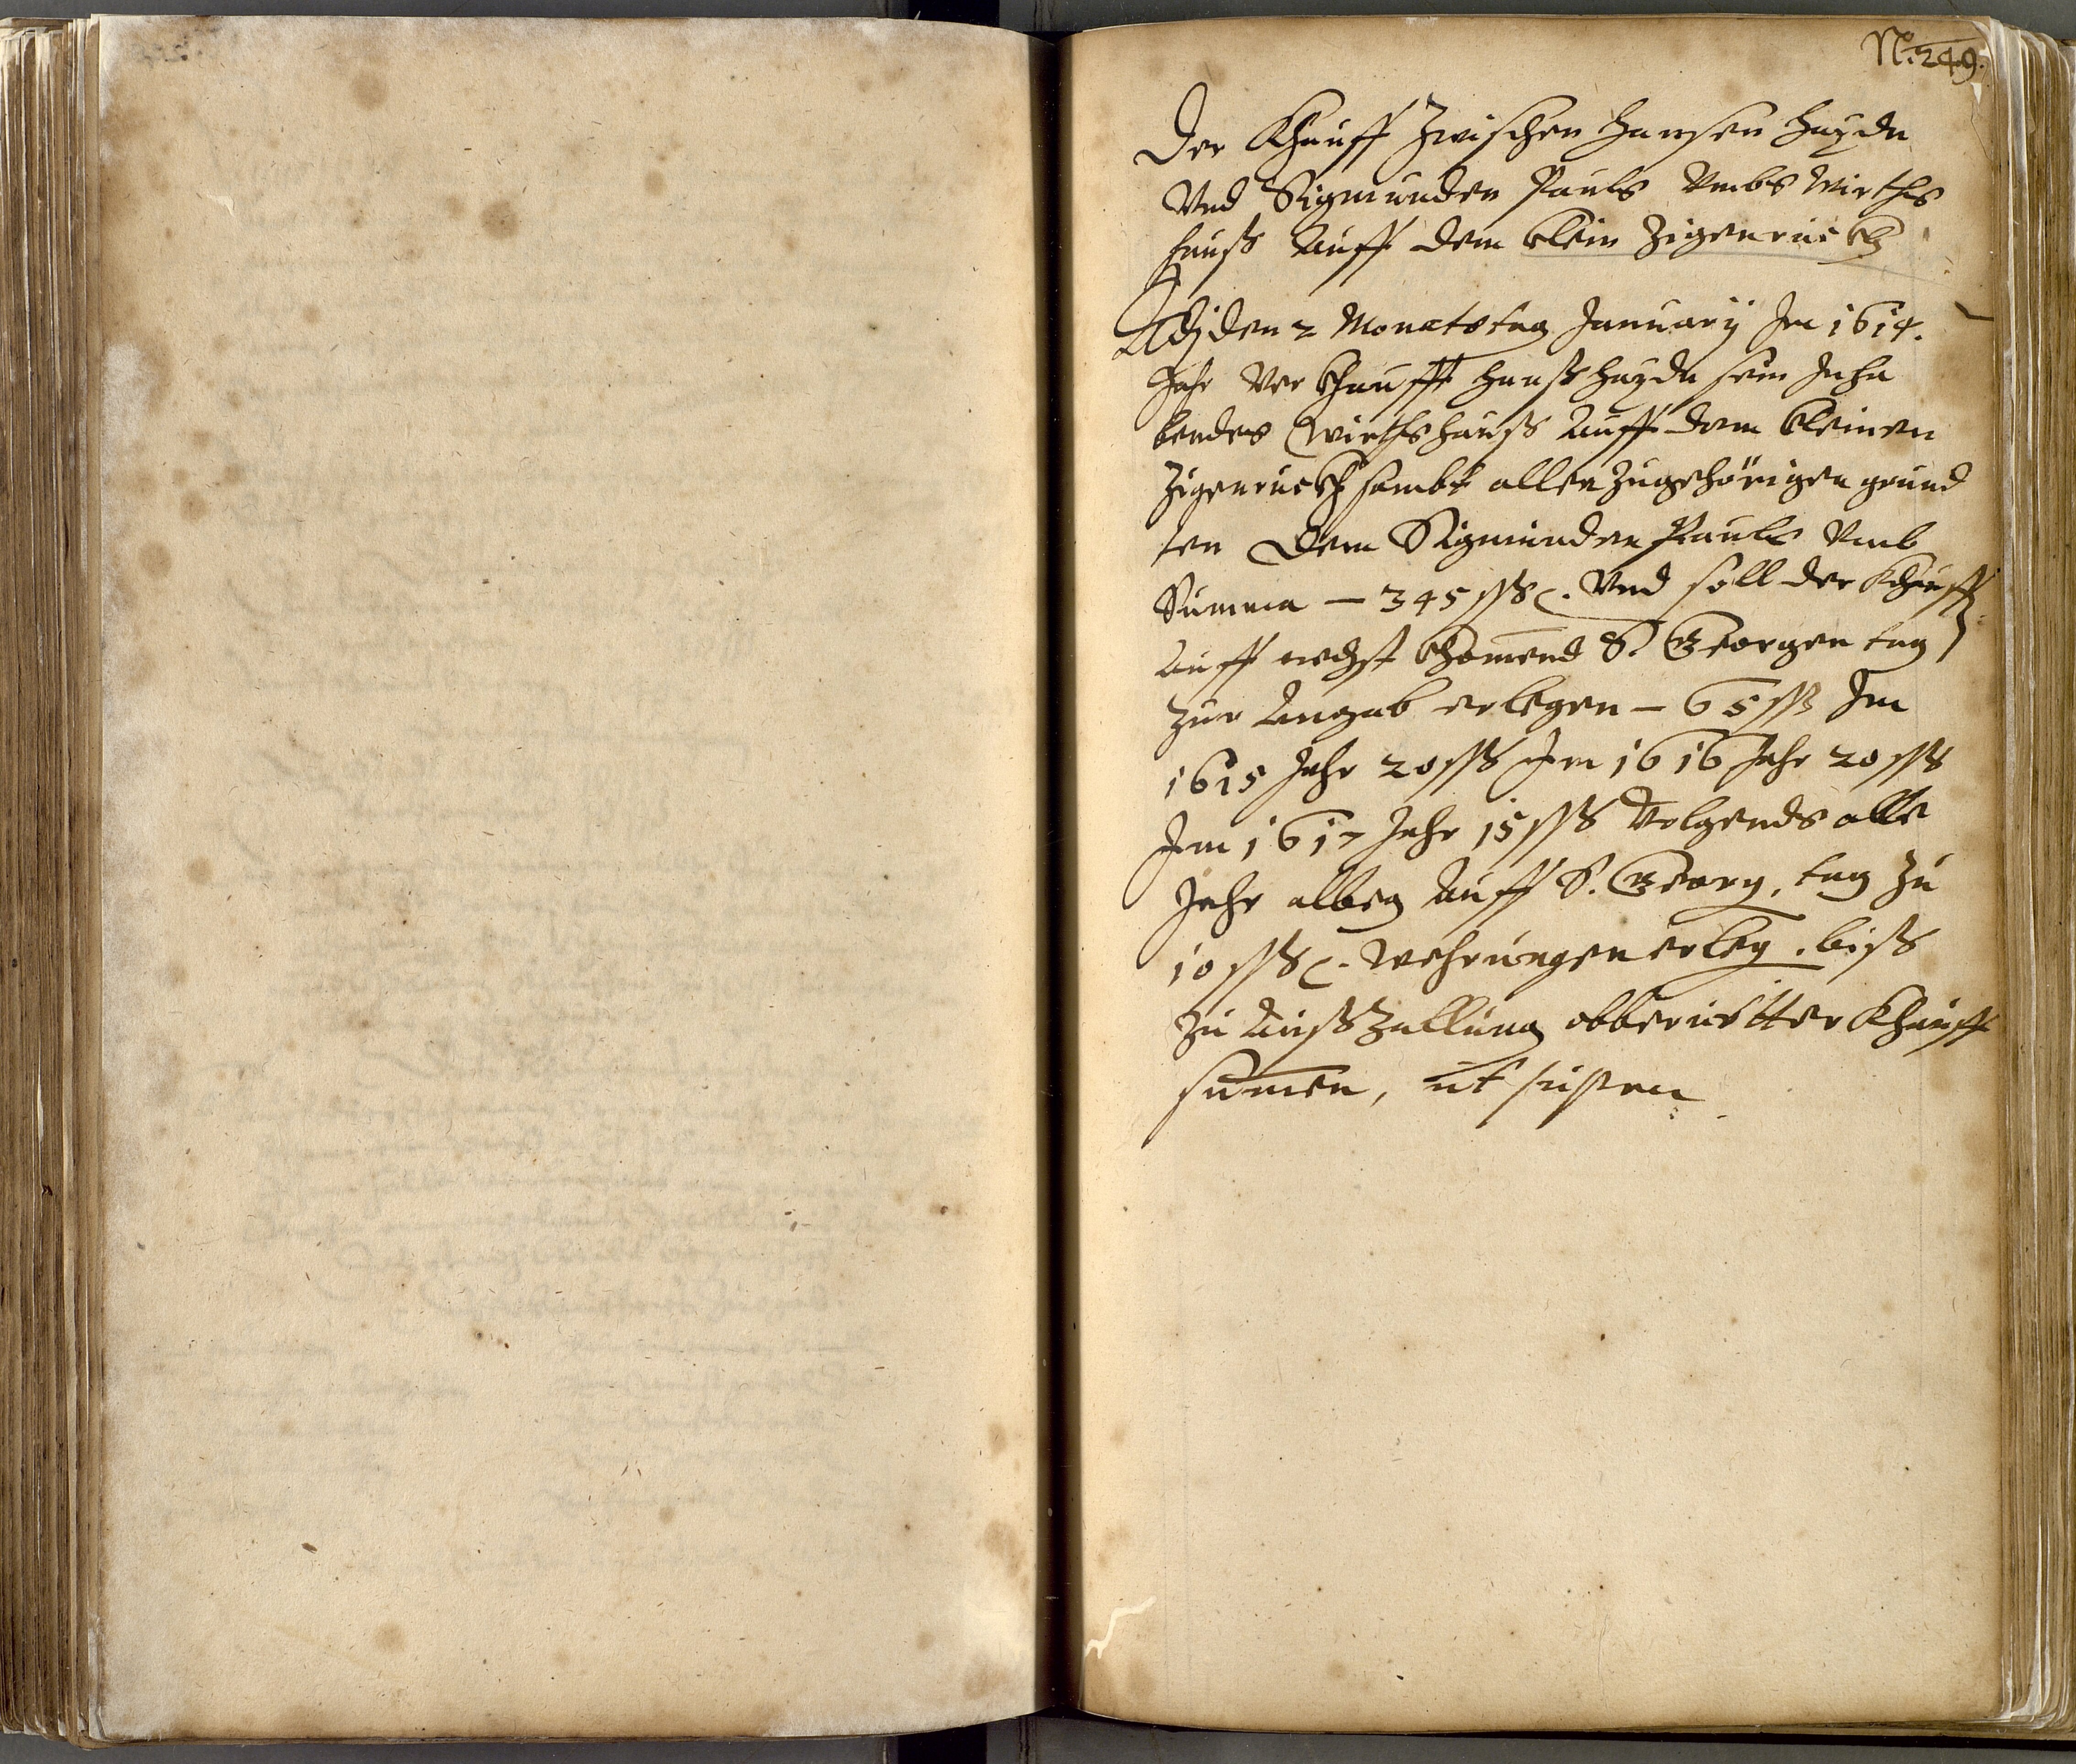 No. 249.
Der Khauff Zwischen Hansen Hayde
Vnd Sigmunden Pauls Vmbs Wirths
hauß Auff dem klein Zigenruckh
Adj den 2 Monatstag January Im 1614.
Jahr Ver khaufft Hanß Hayde sein Inha
bendes Wirthshauß Auff dem kleinen
Zigenruckh sambt allen Zugehörigen grund
ten Dem Sigmunden Pauls Vmb
Summa — 345 ßß. Vnd soll der Khauff
Auff nechst khomend S. Georgen tag
zur Angab erlegen — 65 ßß Im
1615 Jahr 20 ßß Im 1616 Jahr 20 ßß
Im 1617 Jahr 15 ßß Volgends alle
Jahr albeg Auff S. Georg. tag Zu
10 ßß. wehrungen erleg. biß
Zu Außzallung obberürtter Khauff
sumen, ut